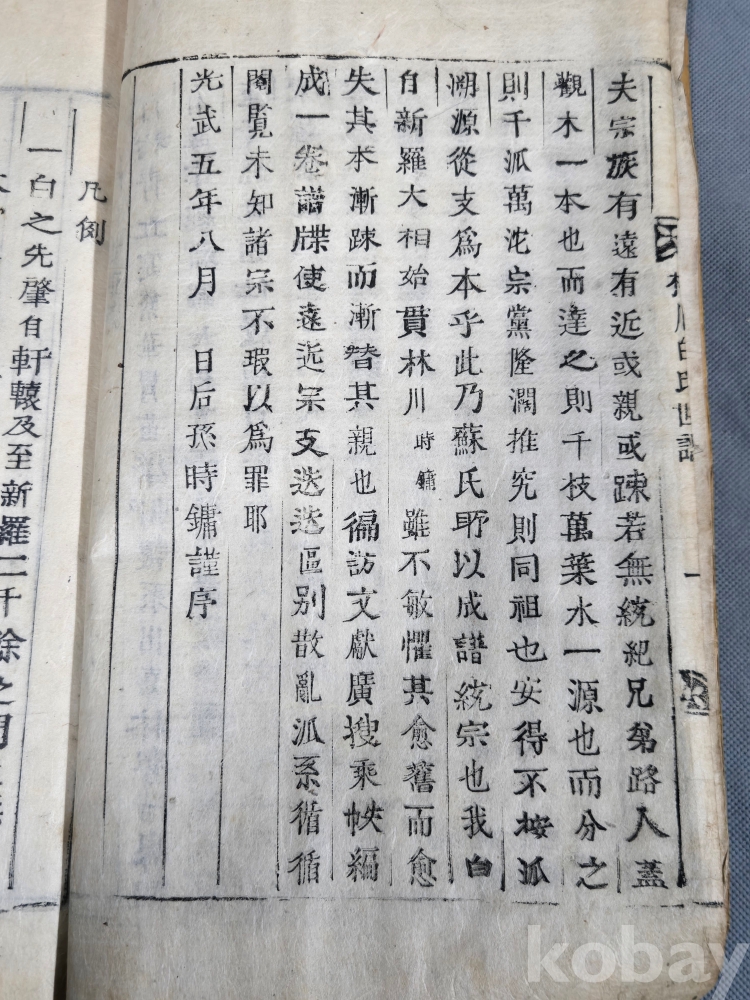 夫宗族有遠有近或親或疎若無統紀兄苐路人蓋
觀木一本也而達之則千枝萬葉水一源也而分之
則千派萬沱宗黨隆濶推究則同祖也安得不按派
溯源從支爲本乎此乃蘇氏所以成譜統宗也我白
自新羅大相始貫林川時鏞雖不敏懼其愈舊而愈
失其本漸踈而漸替其親也徧訪文獻廣搜乘帙編
成一卷譜牒使遠近宗支迭迭區別散亂派系循循
閱覧未知諸宗不瑕以爲罪耶
光武五年八月 日后孫時鏞謹序
白氏世譜
一
凡例
一白之先肇自軒轅及至新羅二千餘之間
kobay